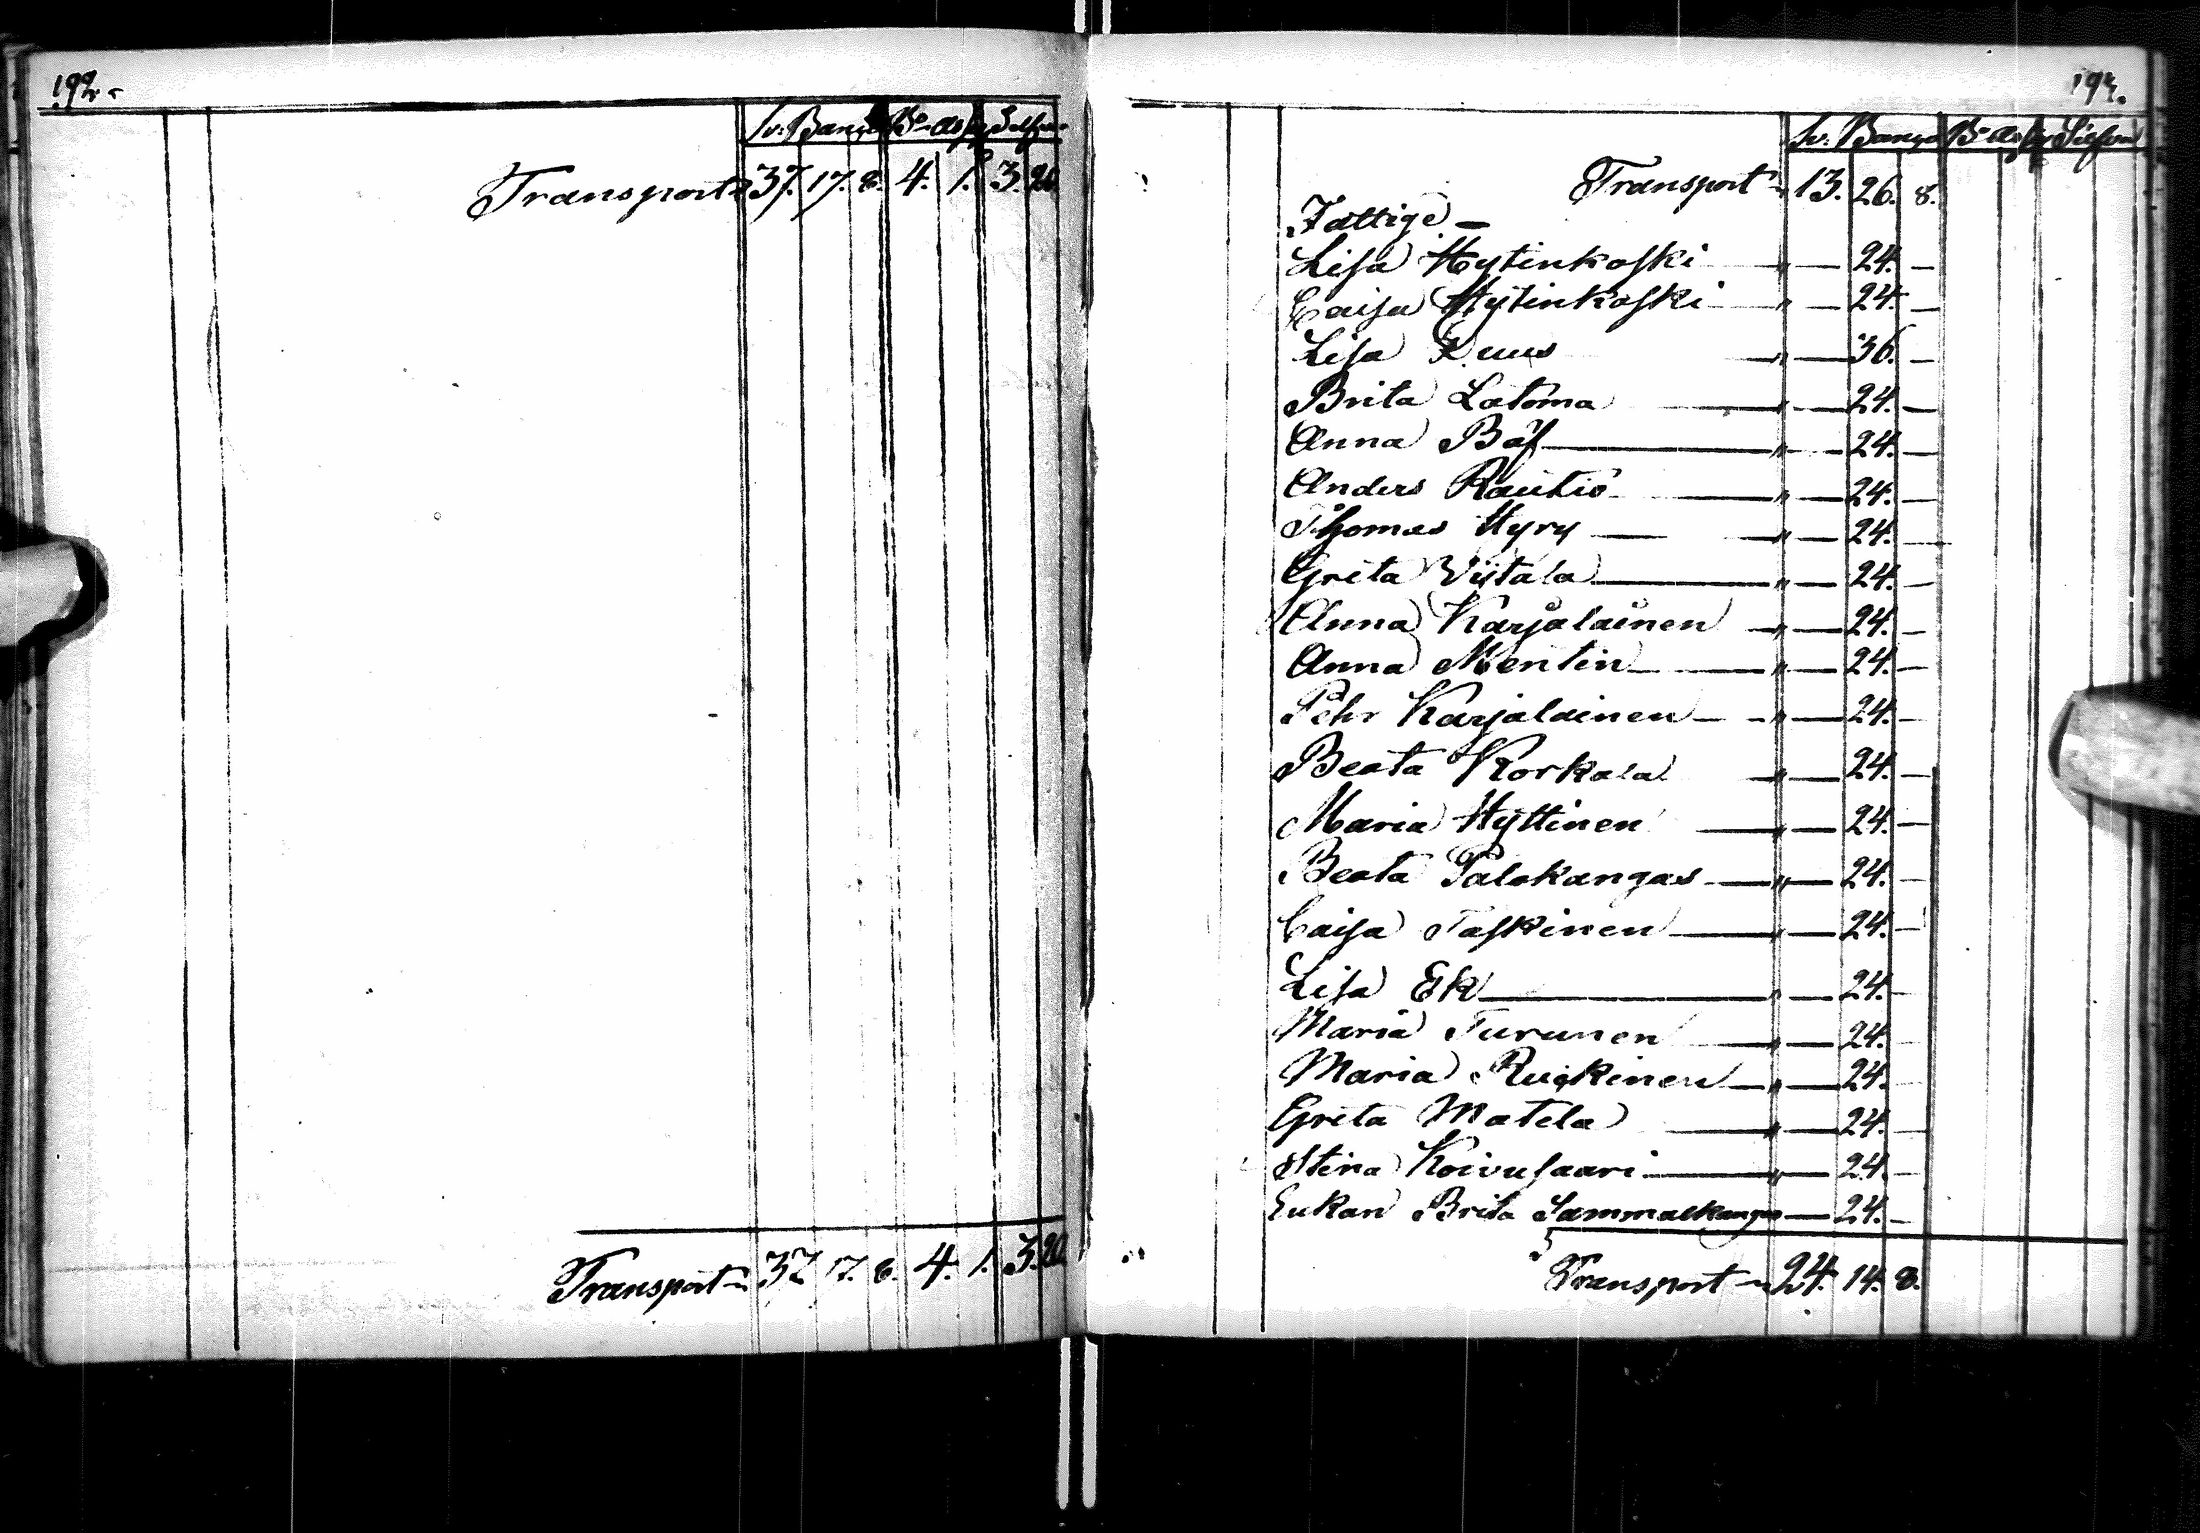 192.
Sv: Banco B:o Ass. Silfver
Transport 37. 17. 8. 4. 1. 3. 20.
Transport 37 17. 8. 4. 1. 3. 20.
193.
Sv: Banco B:o Ass. Silfver
Transport 13. 26. 8.
Fattige —
Lisa Hytinkoski " — 24. —
Caisa Hytinkoski " — 24. —
Lisa Kuus " — 36. —
Brita Latoma " — 24. —
Anna Båf " — 24. —
Anders Rautio " — 24. —
Thomas Hyry " — 24. —
Greta Viitala " — 24. —
Anna Karjalainen " — 24. —
Anna Mentin " — 24. —
Pehr Karjalainen " — 24. —
Beata Korkala " — 24. —
Maria Hyttinen " — 24. —
Beata Palokangas " — 24. —
Caisa Taskinen " — 24. —
Lisa Ek " — 24. —
Maria Turunen " — 24. —
Maria Ruskinen " — 24. —
Greta Matela " — 24. —
Stina Koivusaari " — 24. —
Enkan Brita Sammalkangas — 24. —
Transport 24. 14. 8.